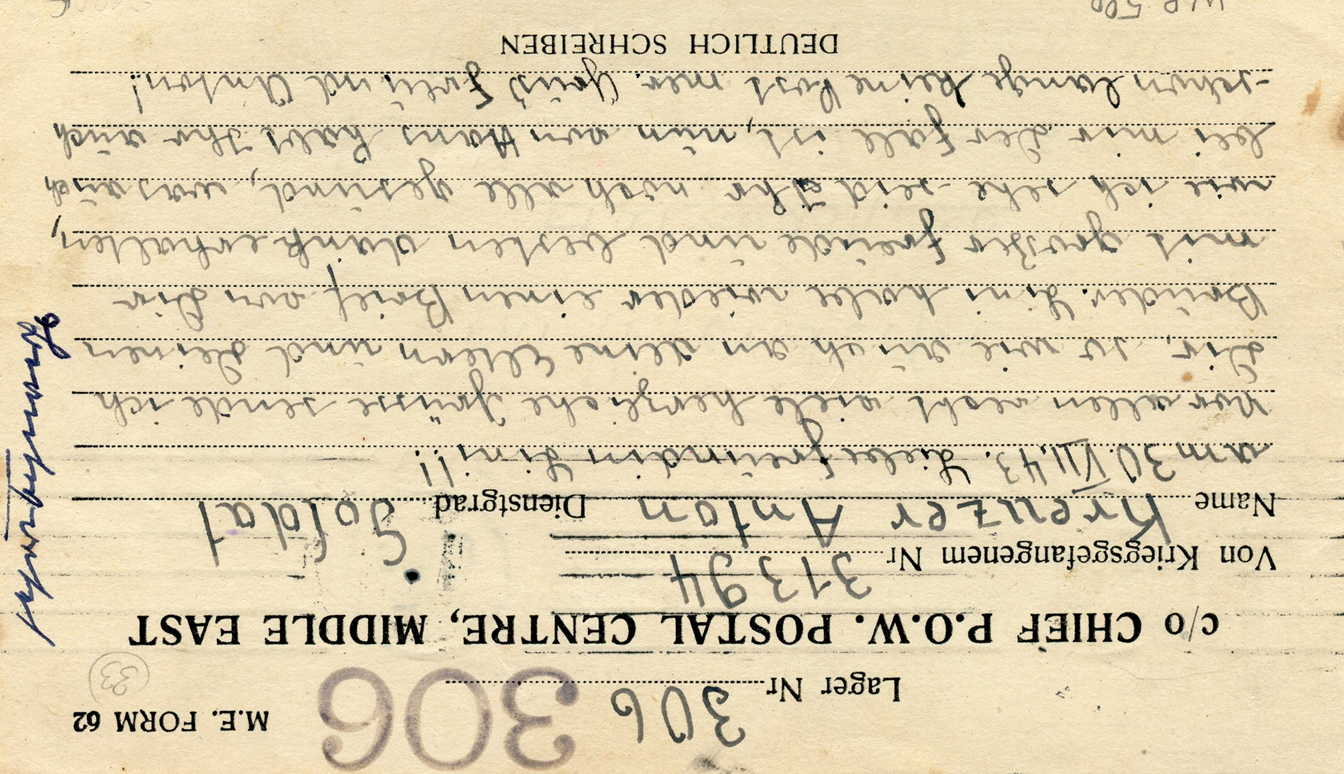 M.E. FORM 62
33
Lager Nr 306
306
c/o CHIEF P.O.W. POSTAL CENTRE, MIDDLE EAST
Von Kriegsgefangenem Nr 31394
Name Kreuzer Anton Dienstgrad Soldat
am 30.VII.43. Liebe freundin Lini!!
Vor allem recht viele herzliche Grüsse sende ich
Dir, so wie auch an deine Eltern und deinen
Brüder. Lini habe wieder einen Brief von Dir
mit groser freude und besten dank erhalten,
wie ich sehe seid Ihr noch alle gesund, was auch
bei mir der fall ist, nun von Hans habt Ihr auch
schon lange keine Post mer. Grüs Freund Anton!
DEUTLICH SCHREIBEN